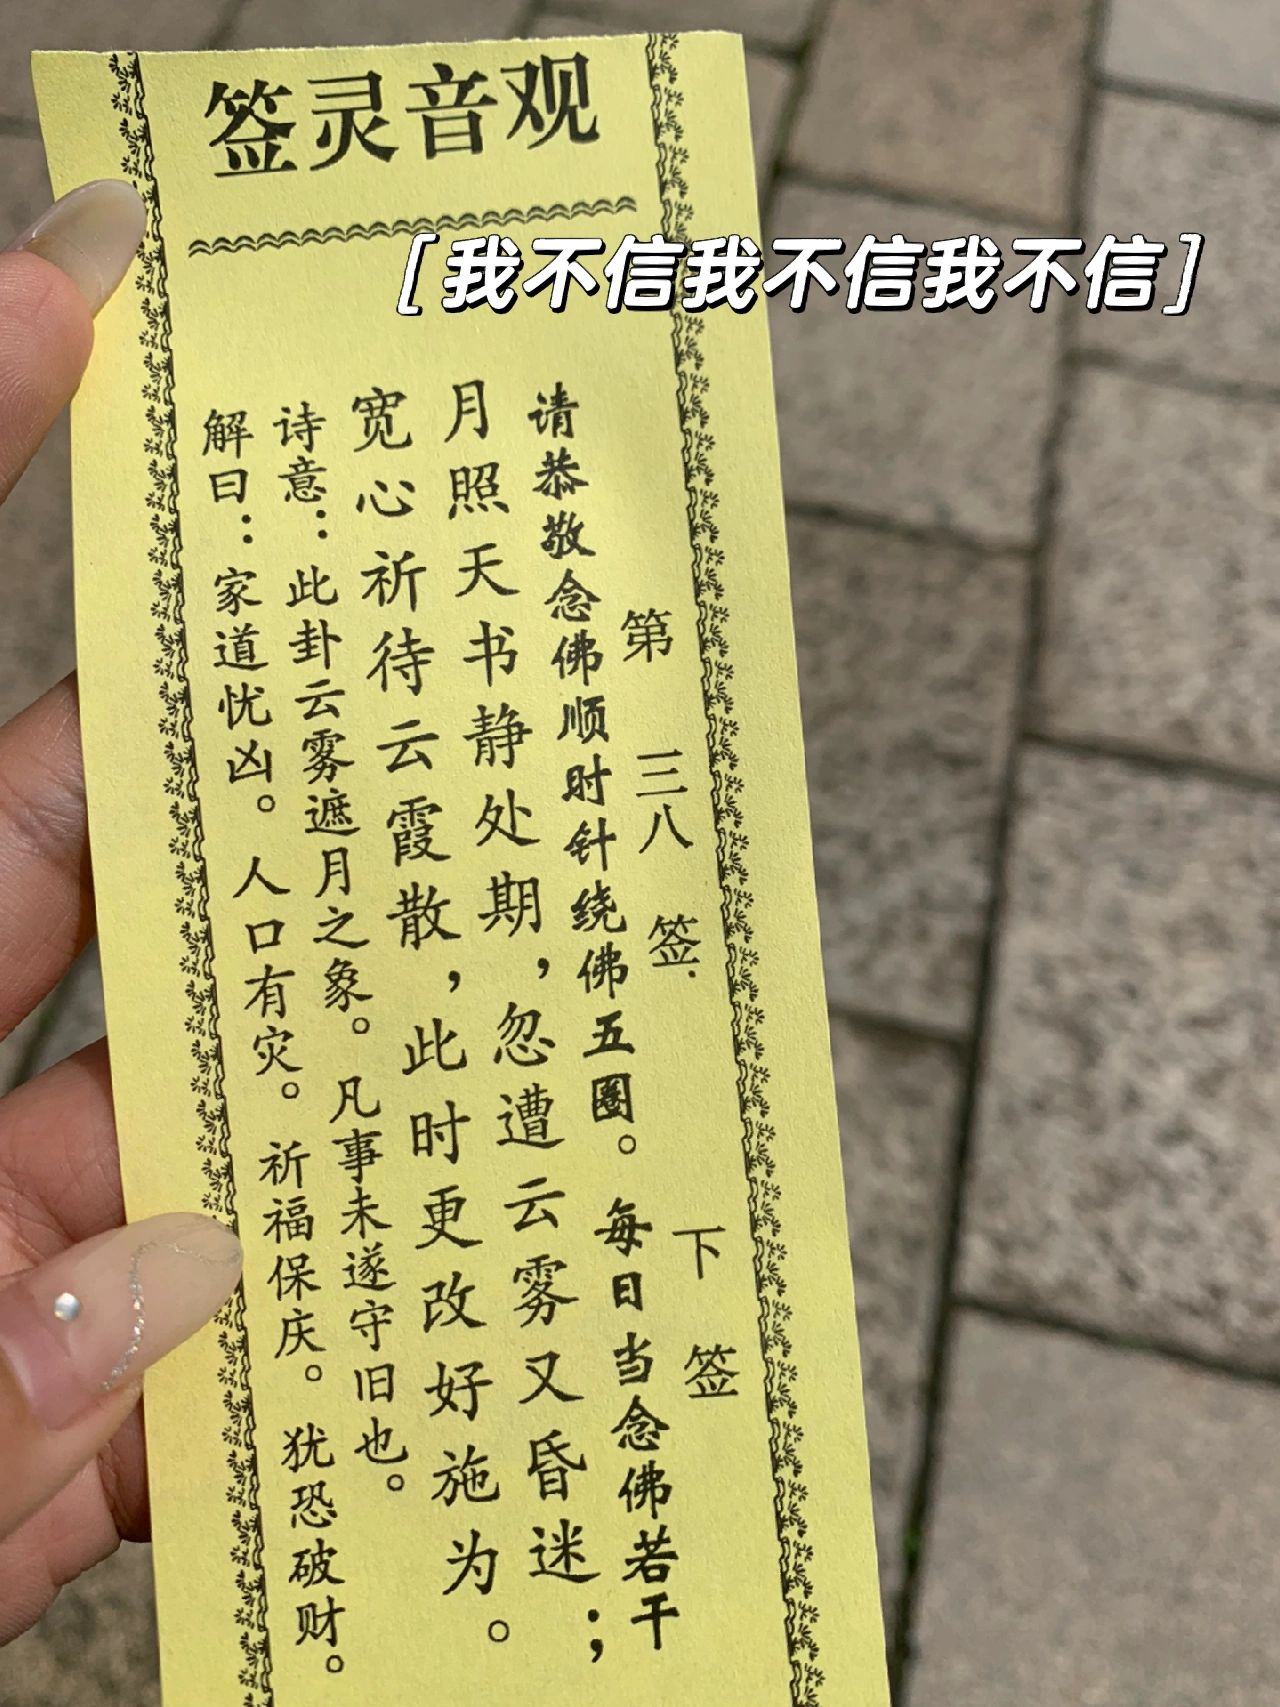 观音灵签
[我不信我不信我不信]
第三八签. 下签
请恭敬念佛顺时针绕佛五圈。每日当念佛若干
月照天书静处期，忽遭云雾又昏迷；
宽心祈待云霞散，此时更改好施为。
诗意：此卦云雾遮月之象。凡事未遂守旧也。
解曰：家道忧凶。人口有灾。祈福保庆。犹恐破财。